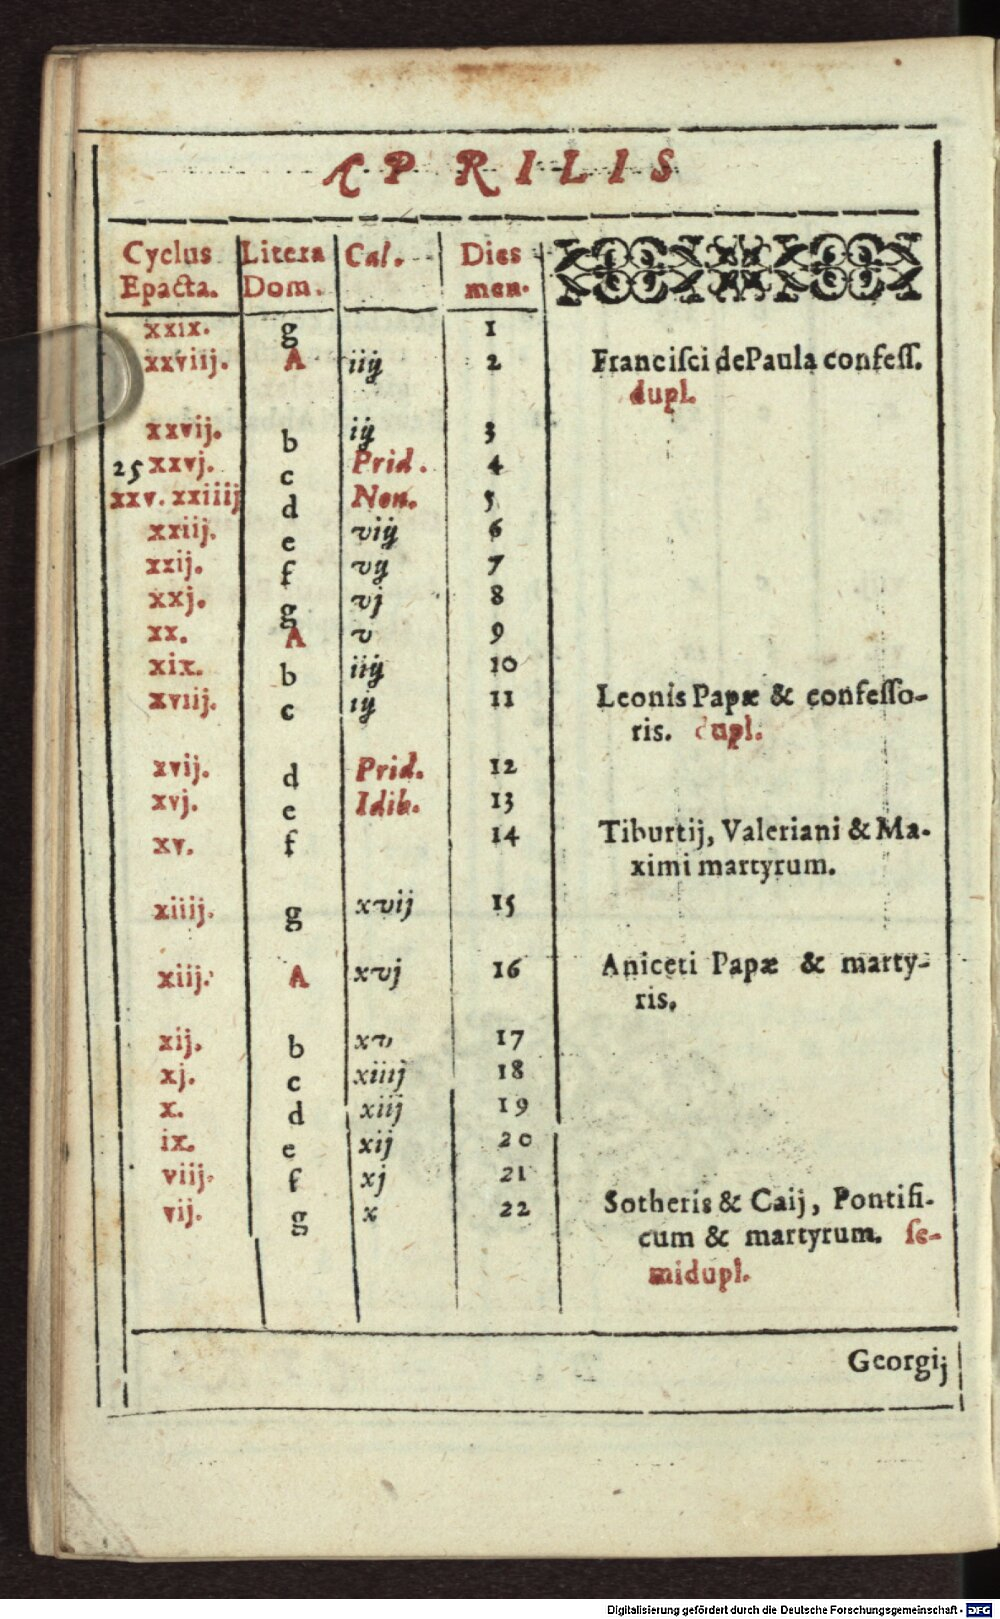 APRILIS
Cyclus Litera Cal. Dies
Epacta. Dom. men.
xxix. g 1
xxviij. A iiij 2 Franciſci de Paula confeſſ.
dupl.
xxvij. b iij 3
25 xxvj. c Prid. 4
xxv. xxiiij d Non. 5
xxiij. e viij 6
xxij. f vij 7
xxj. g vj 8
xx. A v 9
xix. b iiij 10
xviij. c iij 11 Leonis Papæ & confeſſo-
ris. dupl.
xvij. d Prid. 12
xvj. e Idib. 13
xv. f 14 Tiburtij, Valeriani & Ma-
ximi martyrum.
xiiij. g xvij 15
xiij. A xvj 16 Aniceti Papæ & marty-
ris.
xij. b xv 17
xj. c xiiij 18
x. d xiij 19
ix. e xij 20
viij. f xj 21
vij. g x 22 Sotheris & Caij, Pontifi-
cum & martyrum. ſe-
midupl.
Georgij
Digitalisierung gefördert durch die Deutsche Forschungsgemeinschaft - DFG